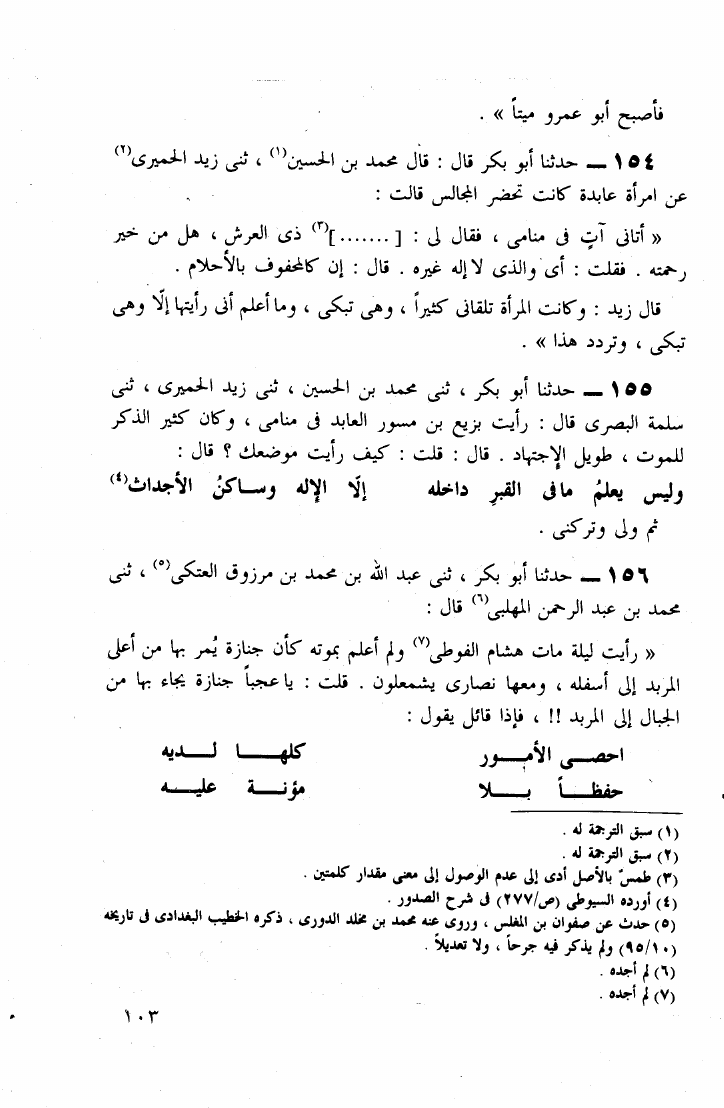 فأصبح أبو عمرو ميتاً » .
١٥٤ ــ حدثنا أبو بكر قال : قال محمد بن الحسين(١) ، ثنى زيد الحميرى(٢)
عن امرأة عابدة كانت تحضر المجالس قالت :
« أتانى آتٍ فى منامى ، فقال لى : [ ....... ](٣) ذى العرش ، هل من خير
رحمته . فقلت : أى والذى لا إله غيره . قال : إن كالمحفوف بالأحلام .
قال زيد : وكانت المرأة تلقانى كثيراً ، وهى تبكى ، وما أعلم أنى رأيتها إلّا وهى
تبكى ، وتردد هذا » .
١٥٥ ــ حدثنا أبو بكر ، ثنى محمد بن الحسين ، ثنى زيد الحميرى ، ثنى
سلمة البصرى قال : رأيت بزيع بن مسور العابد فى منامى ، وكان كثير الذكر
للموت ، طويل الإجتهاد . قال : قلت : كيف رأيت موضعك ؟ قال :
وليس يعلمُ مافى القبرِ داخله إلّا الإله وساكنُ الأجداث(٤)
ثم ولى وتركنى .
١٥٦ ــ حدثنا أبو بكر ، ثنى عبد الله بن محمد بن مرزوق العتكى(٥) ، ثنى
محمد بن عبد الرحمن المهلبى(٦) قال :
« رأيت ليلة مات هشام الفوطى(٧) ولم أعلم بموته كأن جنازة يُمر بها من أعلى
المربد إلى أسفله ، ومعها نصارى يشمعلون . قلت : ياعجباً جنازة يجاء بها من
الجبال إلى المربد !! ، فإذا قائل يقول :
احصــى الأمــور كلهــا لــديه
حفظــاً بــلا مؤنــة عليــه
(١) سبق الترجمة له .
(٢) سبق الترجمة له .
(٣) طمسٌ بالأصل أدى إلى عدم الوصول إلى معنى مقدار كلمتين .
(٤) أورده السيوطى (ص/٢٧٧) فى شرح الصدور .
(٥) حدث عن صفوان بن المغلس ، وروى عنه محمد بن مخلد الدورى ، ذكره الخطيب البغدادى فى تاريخه
(٩٥/١٠) ولم يذكر فيه جرحاً ، ولا تعديلاً .
(٦) لم أجده .
(٧) لم أجده .
١٠٣